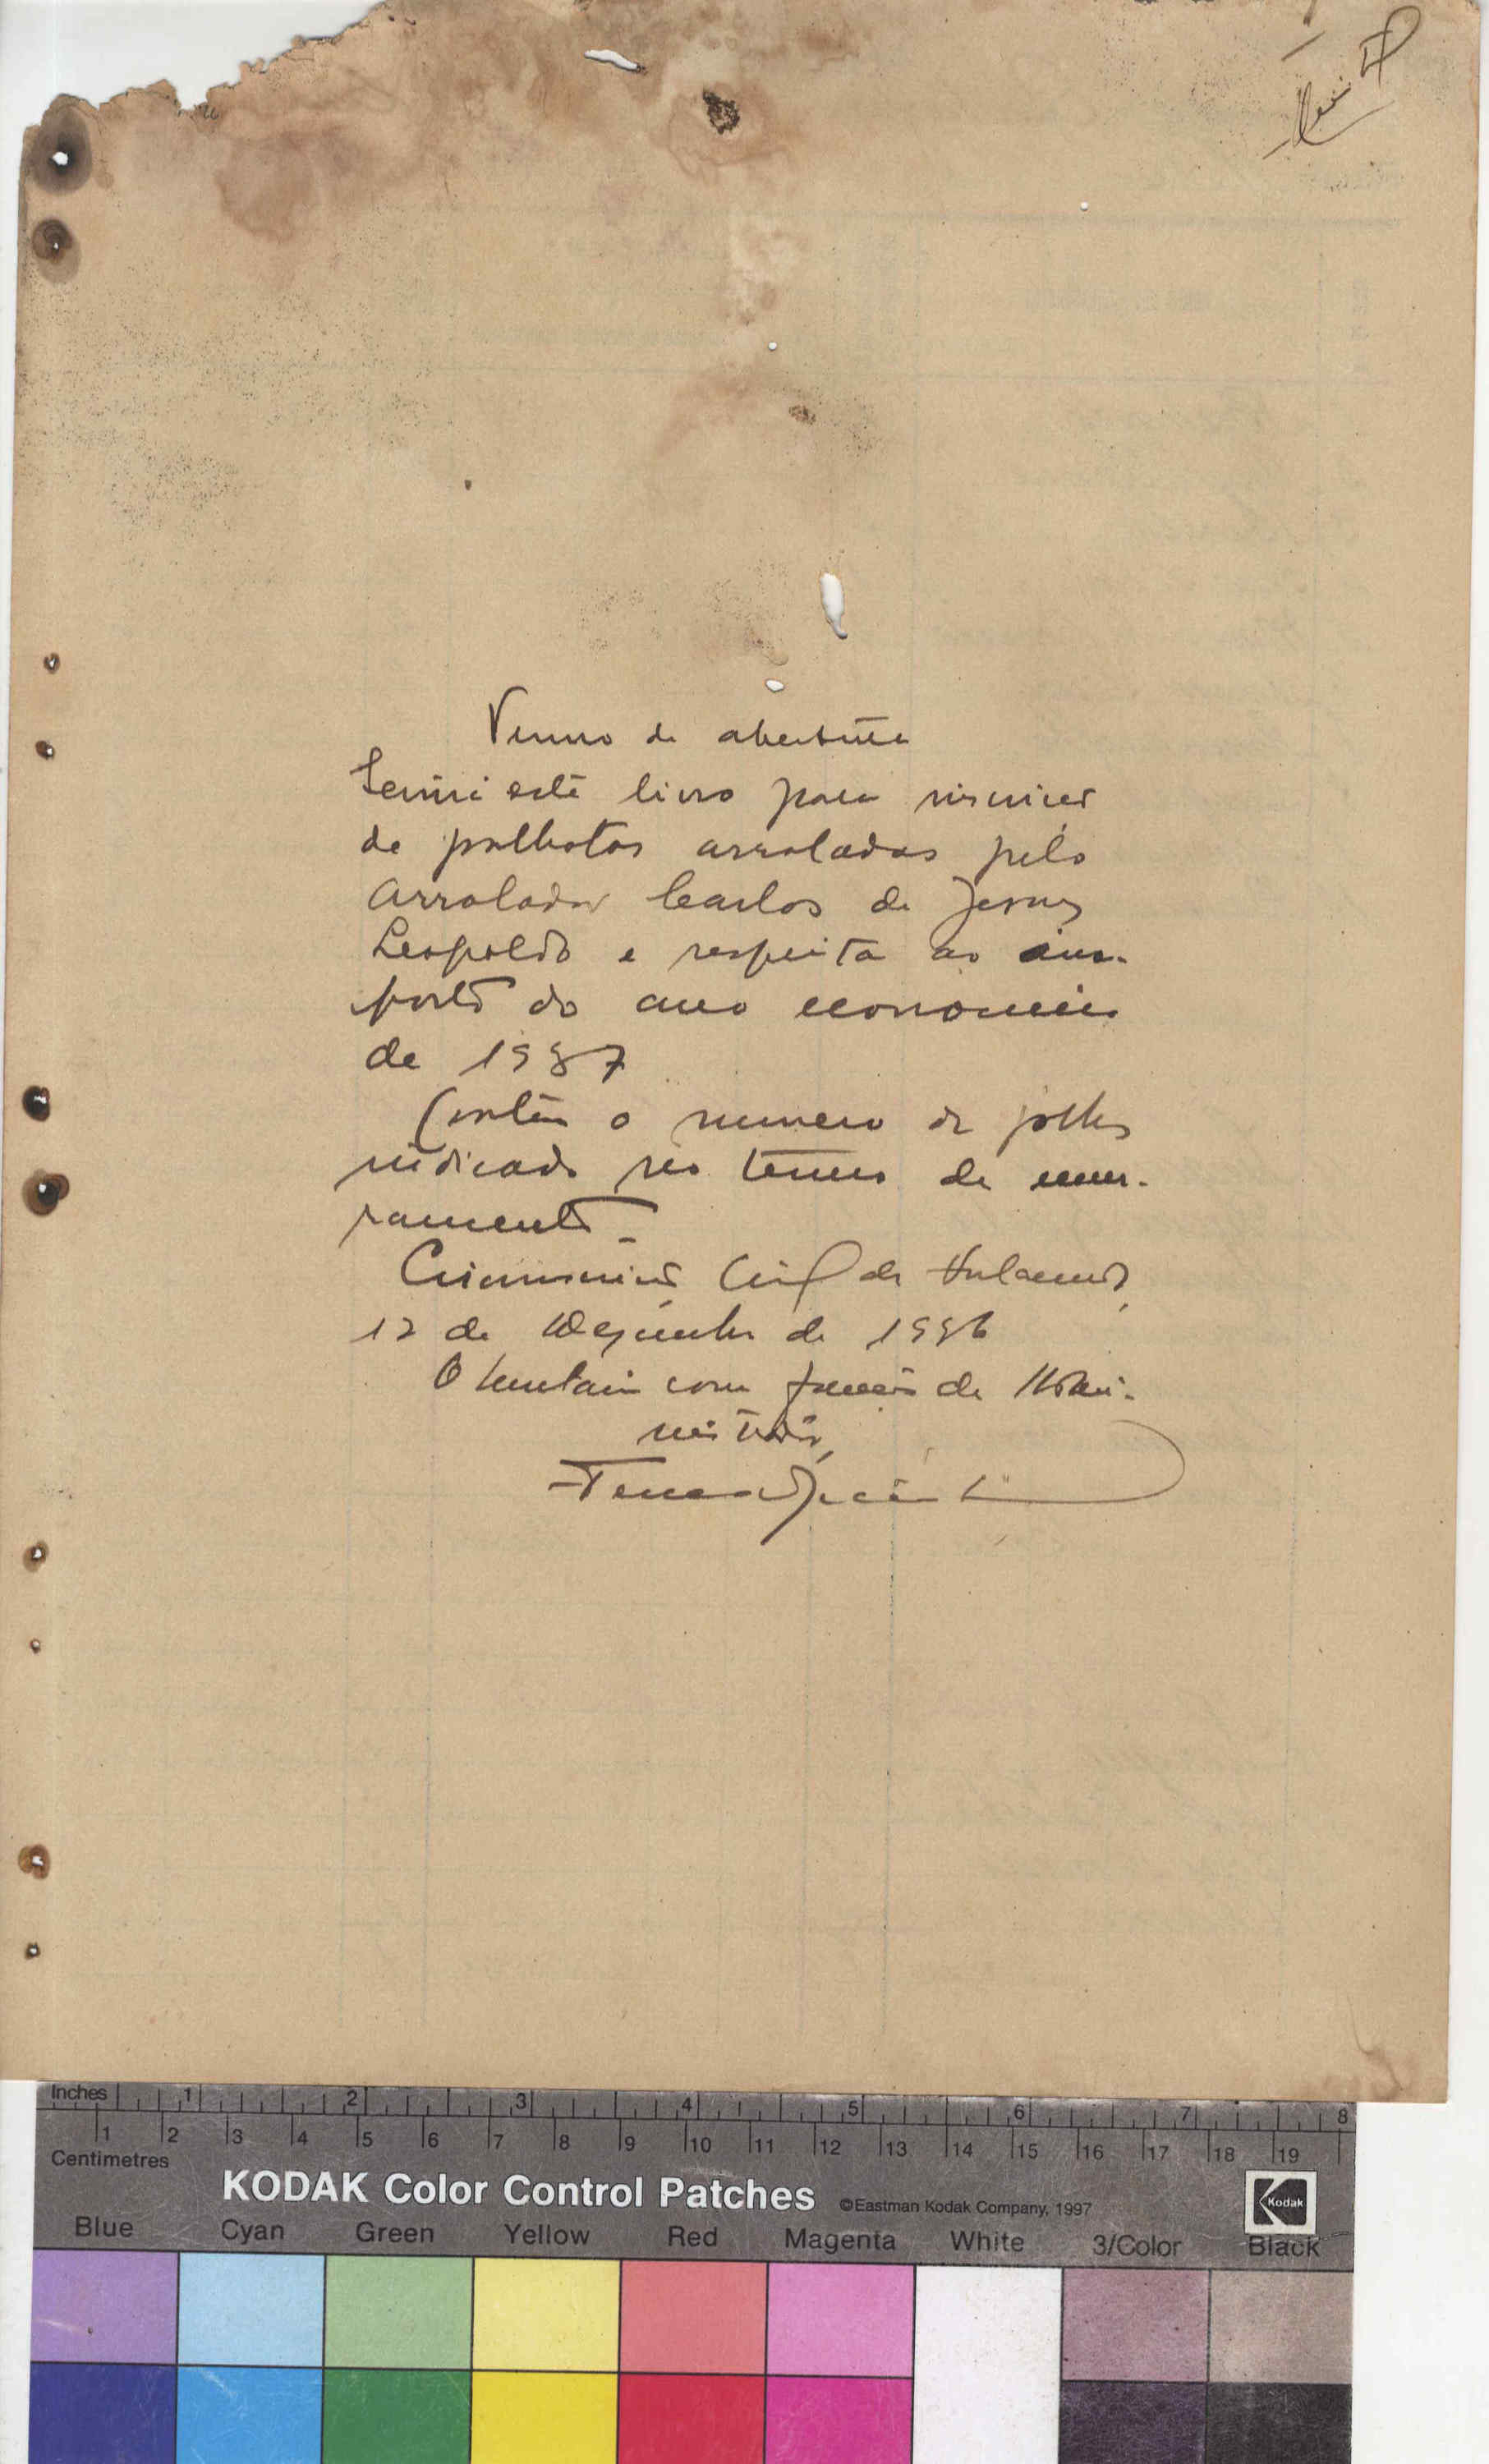 Termo de abertura
Servirá este livro para
de palhotas arroladas pelo
arrolador Carlos de Jesus
Leopoldo e respeita ao im-
posto do ano economico
de 1937
Contem o numero de folhas
indicado no termo de encer-
ramento
Circunscrição Civil de
12 de Dezembro de 1936
O com funções de Admi-
nistrador,
Inches 1 2 3 4 5 6 7 8
1 2 3 4 5 6 7 8 9 10 11 12 13 14 15 16 17 18 19
Centimetres
KODAK Color Control Patches ©Eastman Kodak Company, 1997 Kodak
Blue Cyan Green Yellow Red Magenta White 3/Color Black